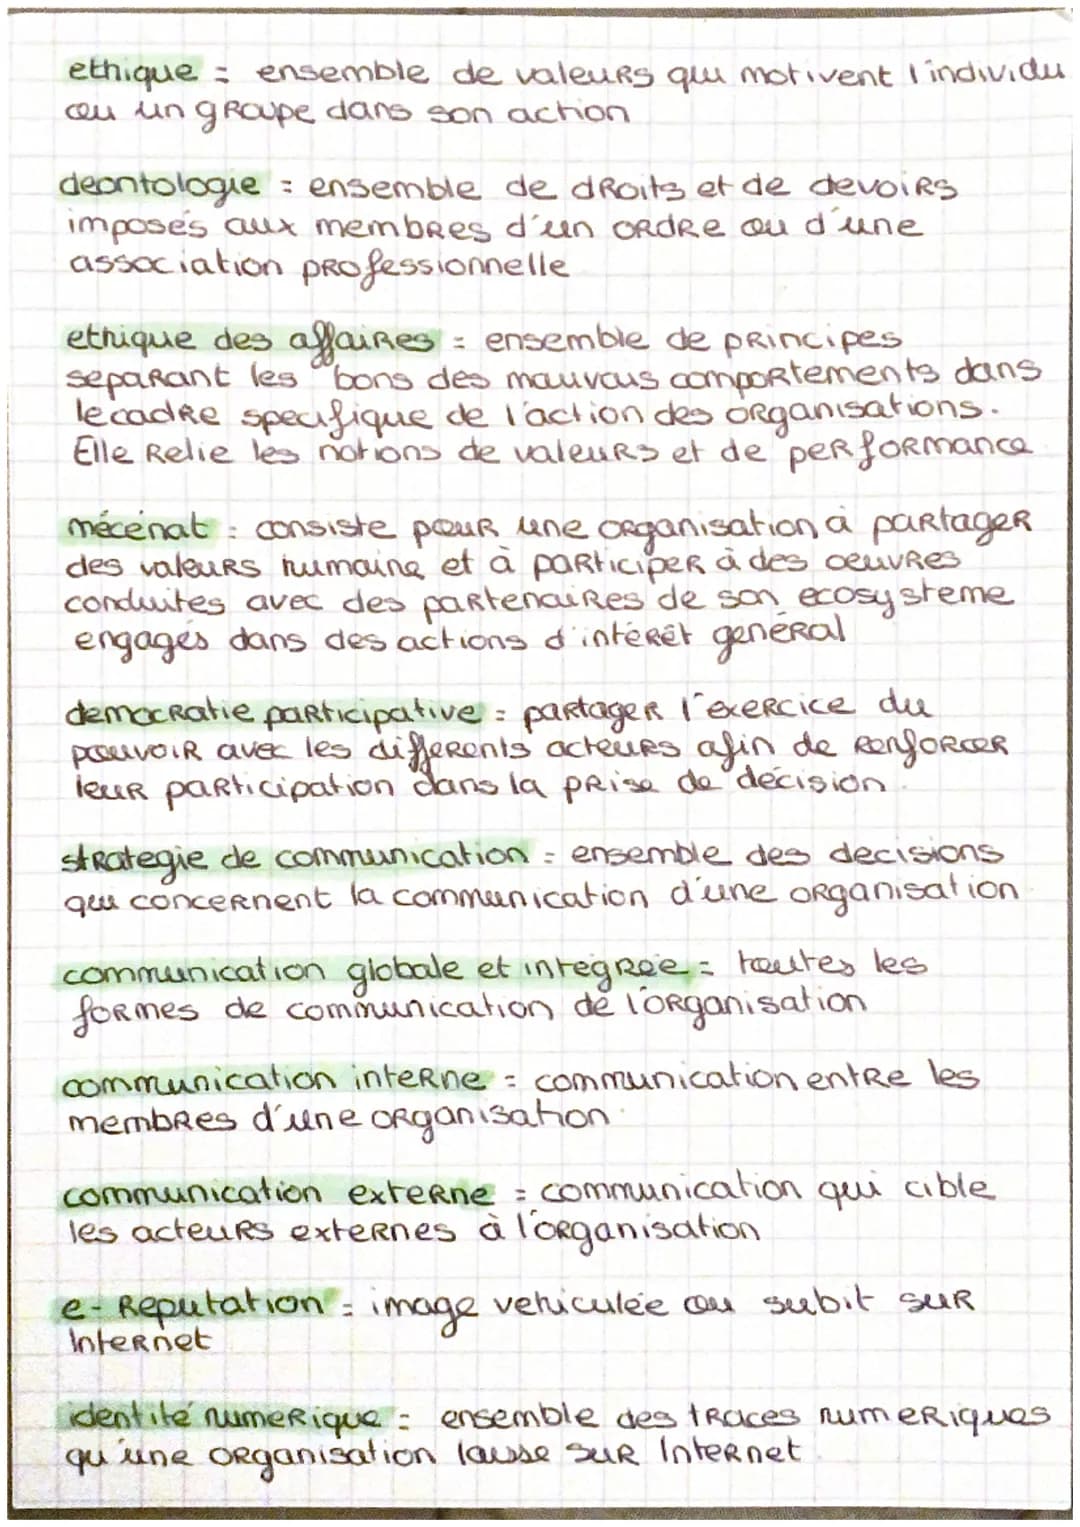 ethique = ensemble de valeurs qui motivent l'individu
ou un groupe dans son action
deontologie = ensemble de droits et de devoirs
imposés aux membres d'un ordre ou d'une
association professionnelle
ethique des affaires = ensemble de principes
separant les bons des mauvais comportements dans
le cadre specifique de l'action des organisations.
Elle relie les notions de valeurs et de performance
mécénat : consiste pour une organisation à partager
des valeurs humaine et à participer à des oeuvres
conduites avec des partenaires de son ecosysteme
engagés dans des actions d'intérêt général
democratie participative = partager l'exercice du
pouvoir avec les différents acteurs afin de renforcer
leur participation dans la prise de décision.
strategie de communication = ensemble des decisions
qui concernent la communication d'une organisation
communication globale et integrée = toutes les
formes de communication de l'organisation
communication interne = communication entre les
membres d'une organisation.
communication externe = communication qui cible
les acteurs externes à l'organisation
e-Reputation = image vehiculée ou subit sur
Internet
identité numerique = ensemble des traces numeriques
qu'une organisation laisse sur Internet